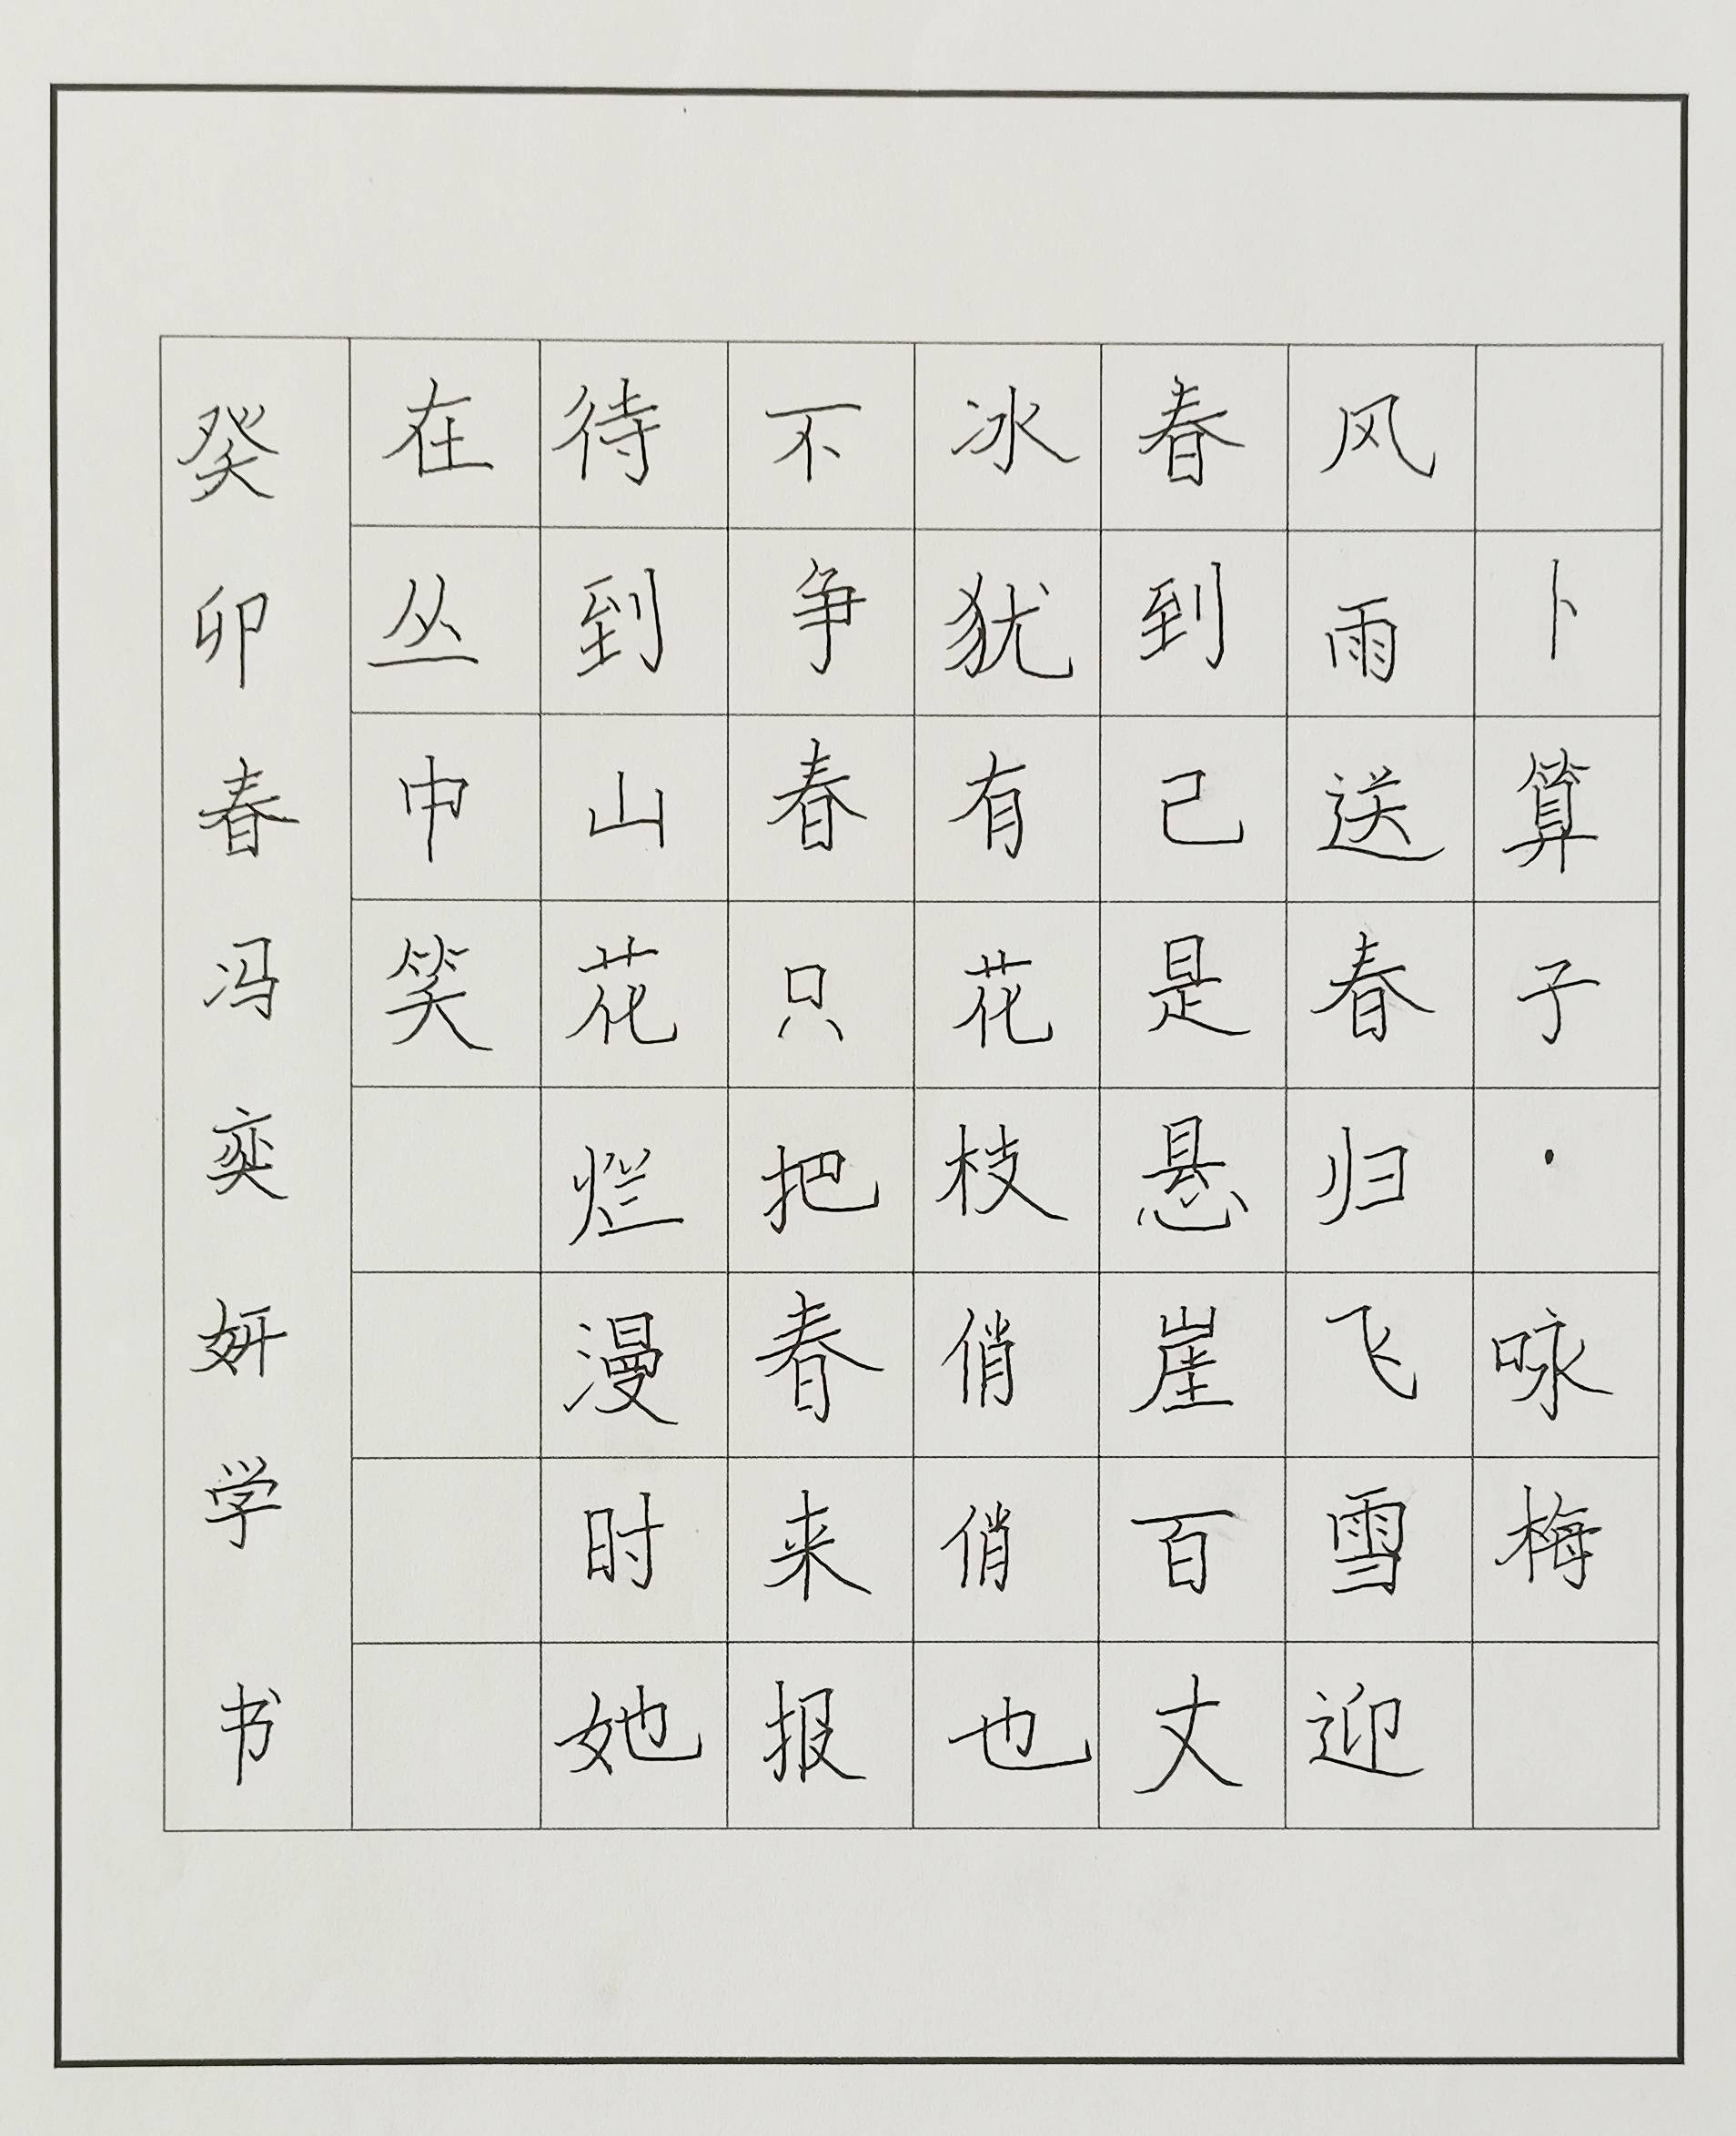 卜算子·咏梅
风雨送春归飞雪迎
春到己是悬崖百丈
冰犹有花枝俏俏也
不争春只把春来报
待到山花烂漫时她
在丛中笑
癸卯春冯奕妍学书